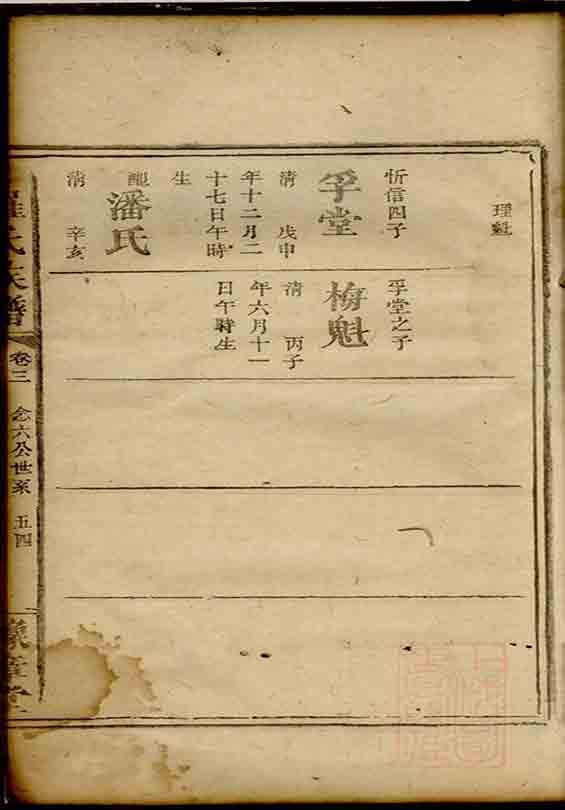 理魁
忻信四子
孚堂
清 戊申
年十二月二
十七日午時
生
配
潘氏
清 辛亥
孚堂之子
梅魁
清 丙子
年六月十一
日午時生
氏族譜
卷三 念六公世系 五四